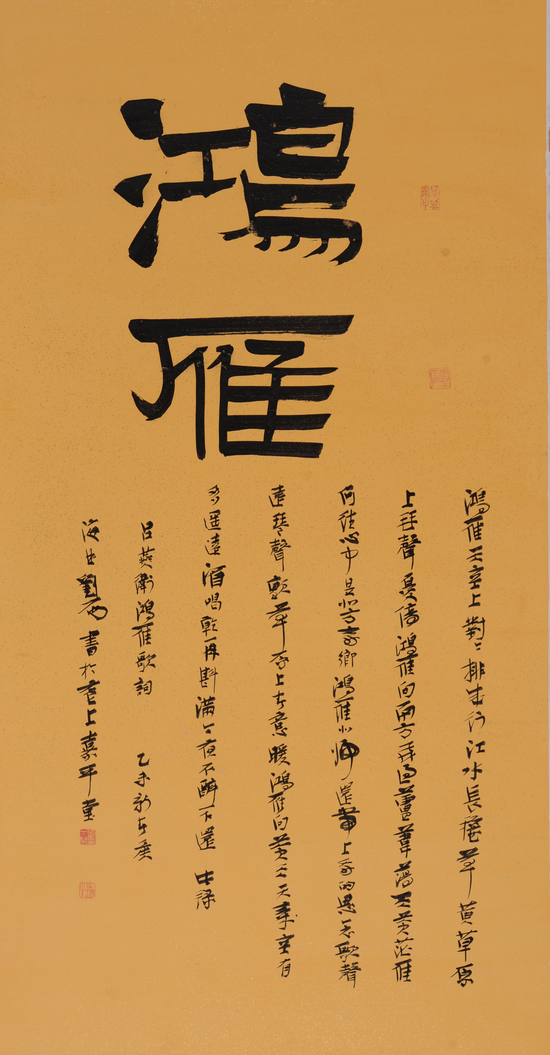 鴻雁
鴻雁天空上對々排成行江水長秋草黄草原
上琴聲憂傷鴻雁向南方飛過蘆葦蕩天蒼茫雁
何往心中是北方家鄉鴻雁北歸還帶上我的思念歌聲
遠琴聲顫草原上春意暖鴻雁向蒼天天空有
多遥遠酒喝乾再斟滿今夜不醉不還
吕燕衛鴻雁歌詞 乙未新春
海生劉 書於 上 平堂